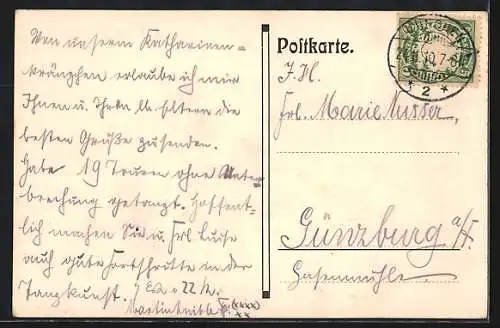 Von unserem Katharinen-
kränzchen erlaube ich mir
Ihnen u. Ihren lb. Eltern die
besten Grüße zuzusenden.
Habe 19 Touren ohne Unter-
brechung getanzt. Hoffent-
lich machen Sie u. Frl. Luise
auch gute Fortschritte in der
Tanzkunst.
Postkarte.
Frl. Marie
Günzburg a/
Hasenmühle.
2